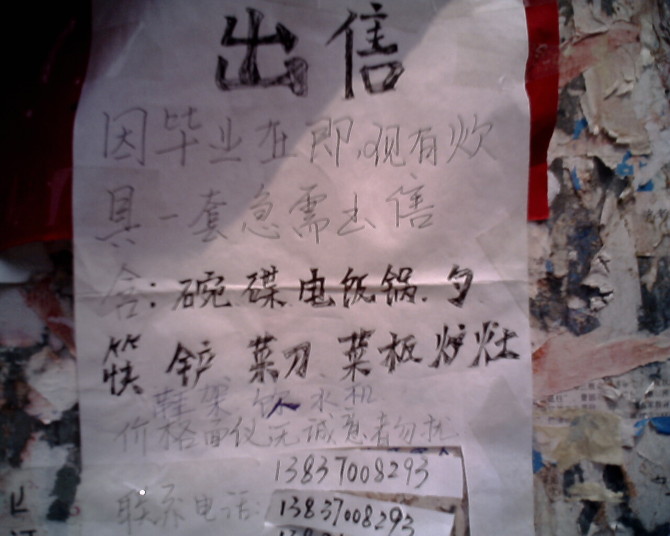 出售
因毕业在即,现有炊
具一套急需出售
含:碗碟电饭锅.勺
筷 铲 菜刀.菜板炉灶
鞋架 饮水机
价格面仪无诚意者勿扰
13837008293
联系电话:13837008293